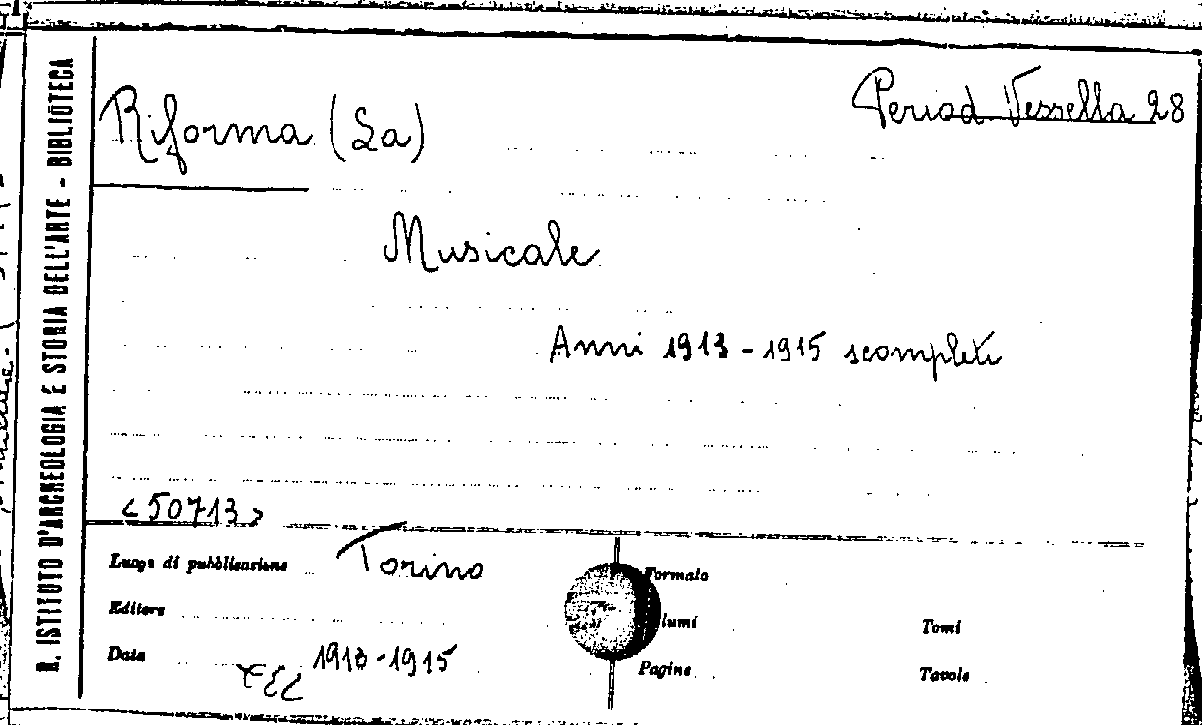 R. ISTITUTO D'ARCHEOLOGIA E STORIA DELL'ARTE - BIBLIOTECA
Period Vessella 28
Riforma (La)
Musicale
Anni 1913-1915 scompleti
<50713>
Luogo di pubblicazione Torino
Formato
Editore
lumi
Tomi
Data 1913-1915
Pagine
Tavole